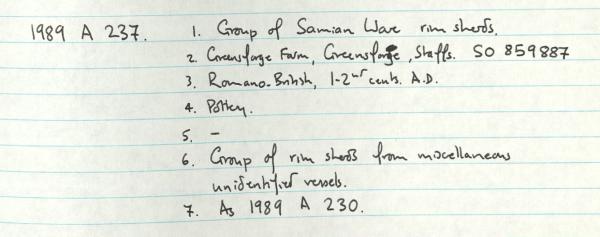 1989 A 237. 1. Group of Samian Ware rim sherds.
2. Greensforge Farm, Greensforge, Staffs. SO 859887
3. Romano-British, 1-2nd cents. A.D.
4. Pottery.
5. -
6. Group of rim sherds from miscellaneous
unidentified vessels.
7. As 1989 A 230.